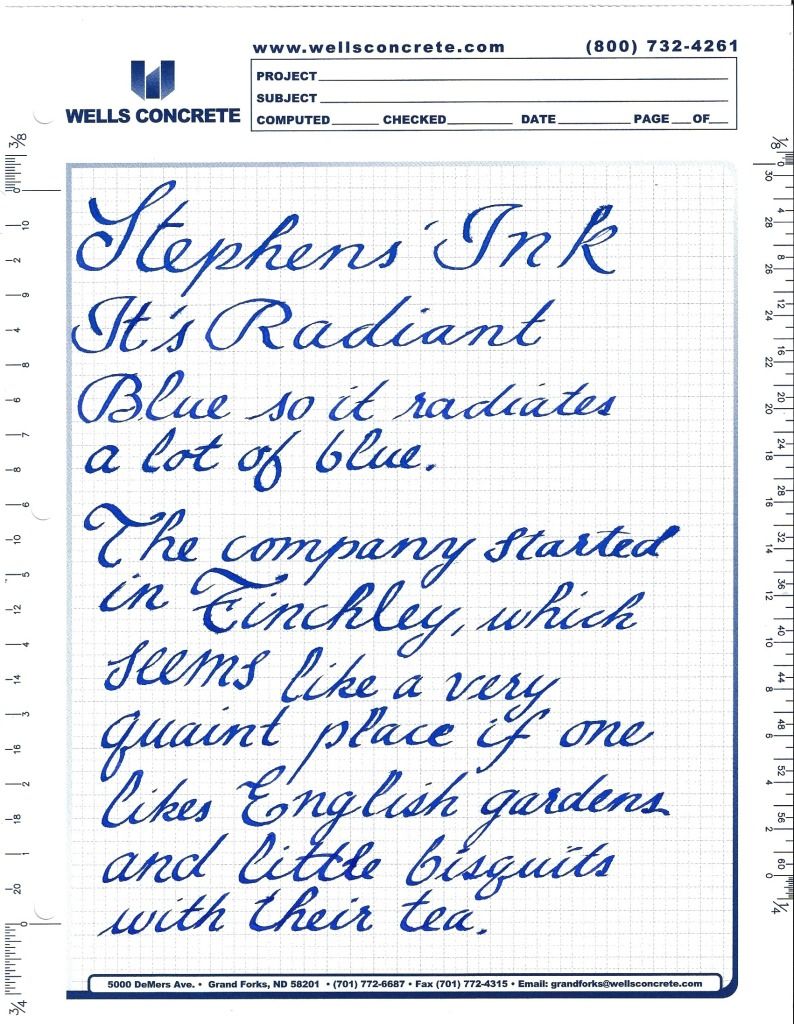 www.wellsconcrete.com (800) 732-4261
WELLS CONCRETE
PROJECT
SUBJECT
COMPUTED CHECKED DATE PAGE OF
Stephens' Ink
It's Radiant
Blue so it radiates
a lot of blue.
The company started
in Finchley, which
seems like a very
quaint place if one
likes English gardens
and little bisquits
with their tea.
5000 DeMers Ave. • Grand Forks, ND 58201 • (701) 772-6687 • Fax (701) 772-4315 • Email: grandforks@wellsconcrete.com
3/8
0
10
2
9
4
8
6
7
8
6
10
5
12
4
14
3
16
2
18
1
20
0
3/4
1/8
0
30
4
28
8
26
12
24
16
22
20
20
24
18
28
16
32
14
36
12
40
10
44
8
48
6
52
4
56
2
60
0
1/4